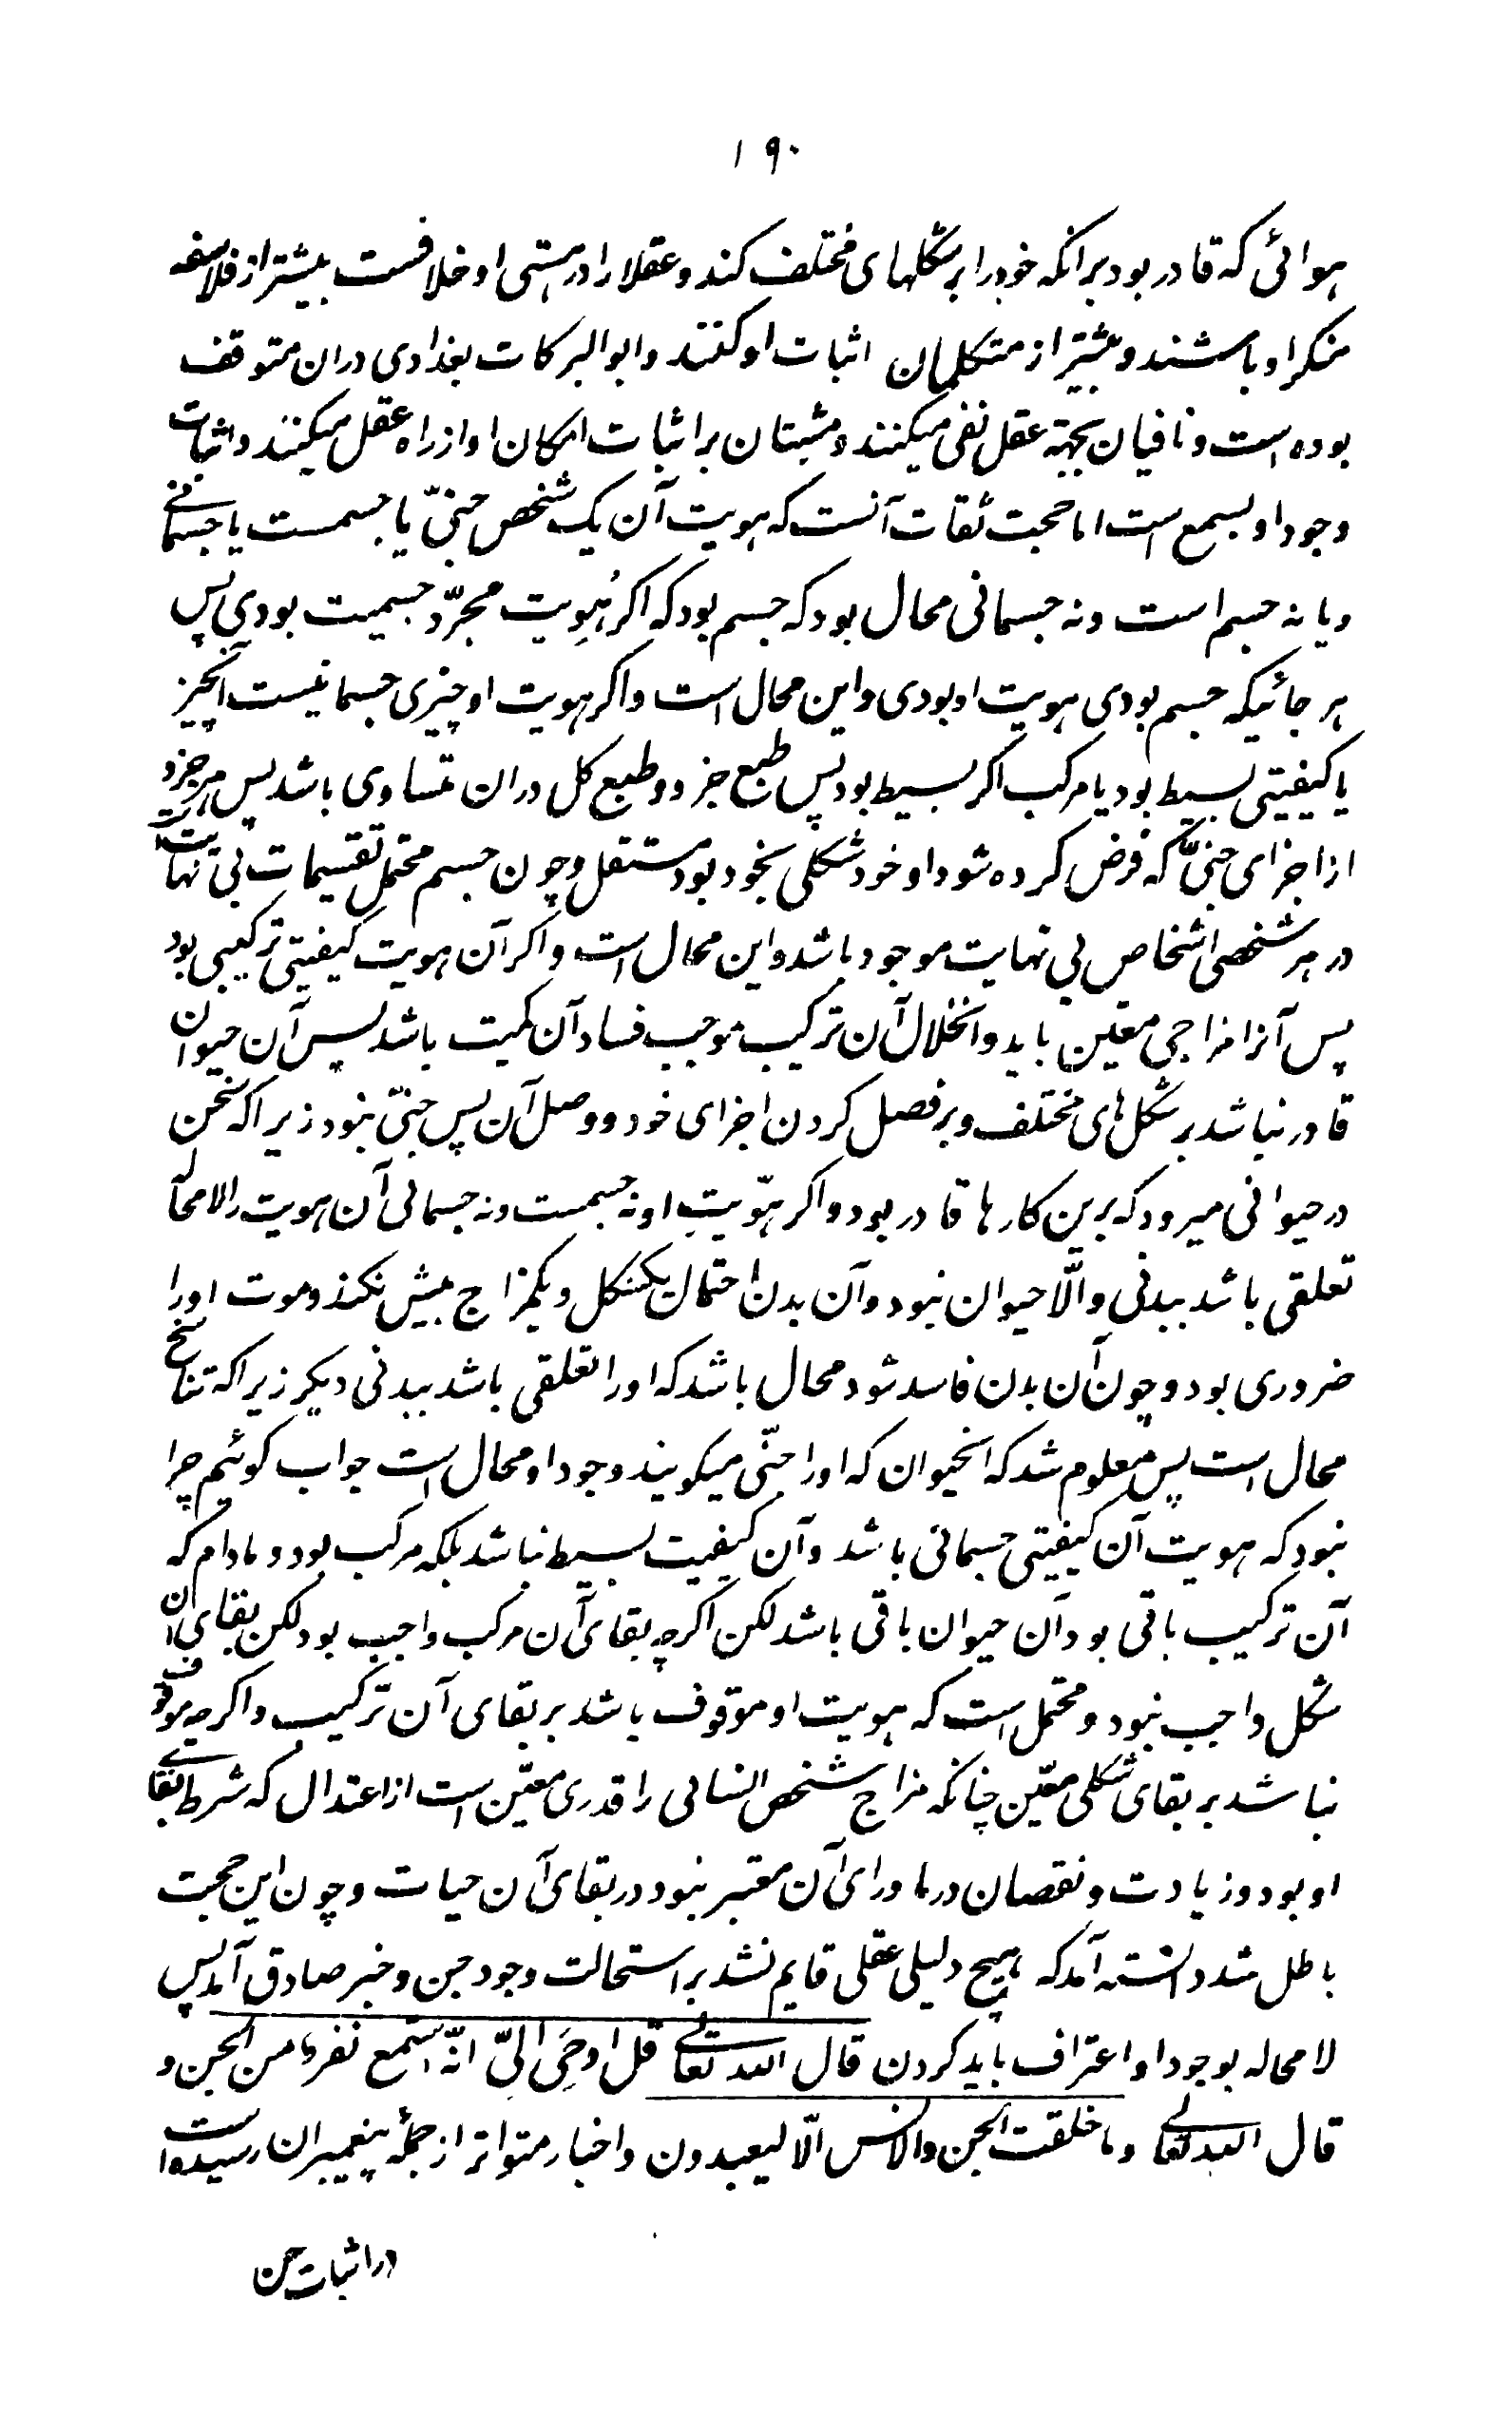 ۱۹۰
هوائی که قادر بود برانکه خود را برشکلهای مختلف کند و عقلا را در هستی او خلافست بیشتر از فلاسفه
منکر او باشند و بیشتر از متکلمان اثبات او کنند و ابوالبرکات بغدادی دران متوقف
بوده است و نافیان بجهة عقل نفی میکنند و مثبتان بر اثبات امکان او از راه عقل میکنند و اثبات
وجود او بسمع است اما حجت نفات آنست که هویت آن یک شخص جنّی یا جسمست یا جسمانی
و یا نه جسم است و نه جسمانی محال بود که جسم بود که اکر هُویت مجرّد جسمیت بودی پس
هر جائیکه جسم بودی هویت او بودی و این محال است و اکر هویت او چیزی جسمانیست آنچیز
یا کیفیتی بسیط بود یا مرکب اکر بسیط بود پس طبع جزو و طبع کل دران متساوی باشد پس هر جزو
از اجزای جنّی که فرض کرده شود او خود شکلی بخود بود مستقل و چون جسم محتمل تقسیمات بی نهایت است
در هر شخصی اشخاص بی نهایت موجود باشد و این محال است و اکر آن هویت کیفیتی ترکیبی بود
پس آنرا مزاجی معین باید و انحلال آن ترکیب موجب فساد آن کمیت باشد پس آن حیوان
قادر نباشد بر شکل های مختلف و بر فصل کردن اجزای خود و وصل آن پس جنّی نبود زیرا که سخن
در حیوانی میرود که برین کارها قادر بود و اکر هوّیتِ او نه جسمست و نه جسمانی آن هویت را لا محاله
تعلقی باشد ببدنی والّا حیوان نبود و آن بدن احتمال یکشکل و یکمزاج بیش نکند و موت او را
ضروری بود و چون آن بدن فاسد شود محال باشد که او را تعلقی باشد ببدنی دیکر زیرا که تناسخ
محال است پس معلوم شد که انحیوان که او را جنّی میکویند وجود او محال است جواب کوئیم چرا
نبود که هویت آن کیفیتی جسمانی باشد و آن کیفیت بسیط نباشد بلکه مرکب بود و مادام که
آن ترکیب باقی بود آن حیوان باقی باشد لکن اکرچه بقای آن مرکب واجب بود لکن بقای آن
شکل واجب نبود و محتمل است که هویت او موقوف باشد بر بقای آن ترکیب و اکرچه موقوف
نباشد بر بقای شکلی معیّن چنانکه مزاج شخص انسانی را قدری معیّن است از اعتدال که شرط بقای
او بود و زیادت و نقصان در ماورای آن معتبر نبود در بقای آن حیات و چون این حجت
باطل شد دانسته آمد که هیچ دلیلی عقلی قایم نشد بر استحالت وجود جن و خبر صادق آمد پس
لا محاله بوجود او اعتراف باید کردن قال الله تعالی قل اُوحِیَ اِلیّ انّه استمع نفر من الجن و
قال الله تعالی و ما خلقت الجن والانس الّا لیعبدون و اخبار متواتر از جملهٔ پیغمبران رسیده است
در اثبات جن